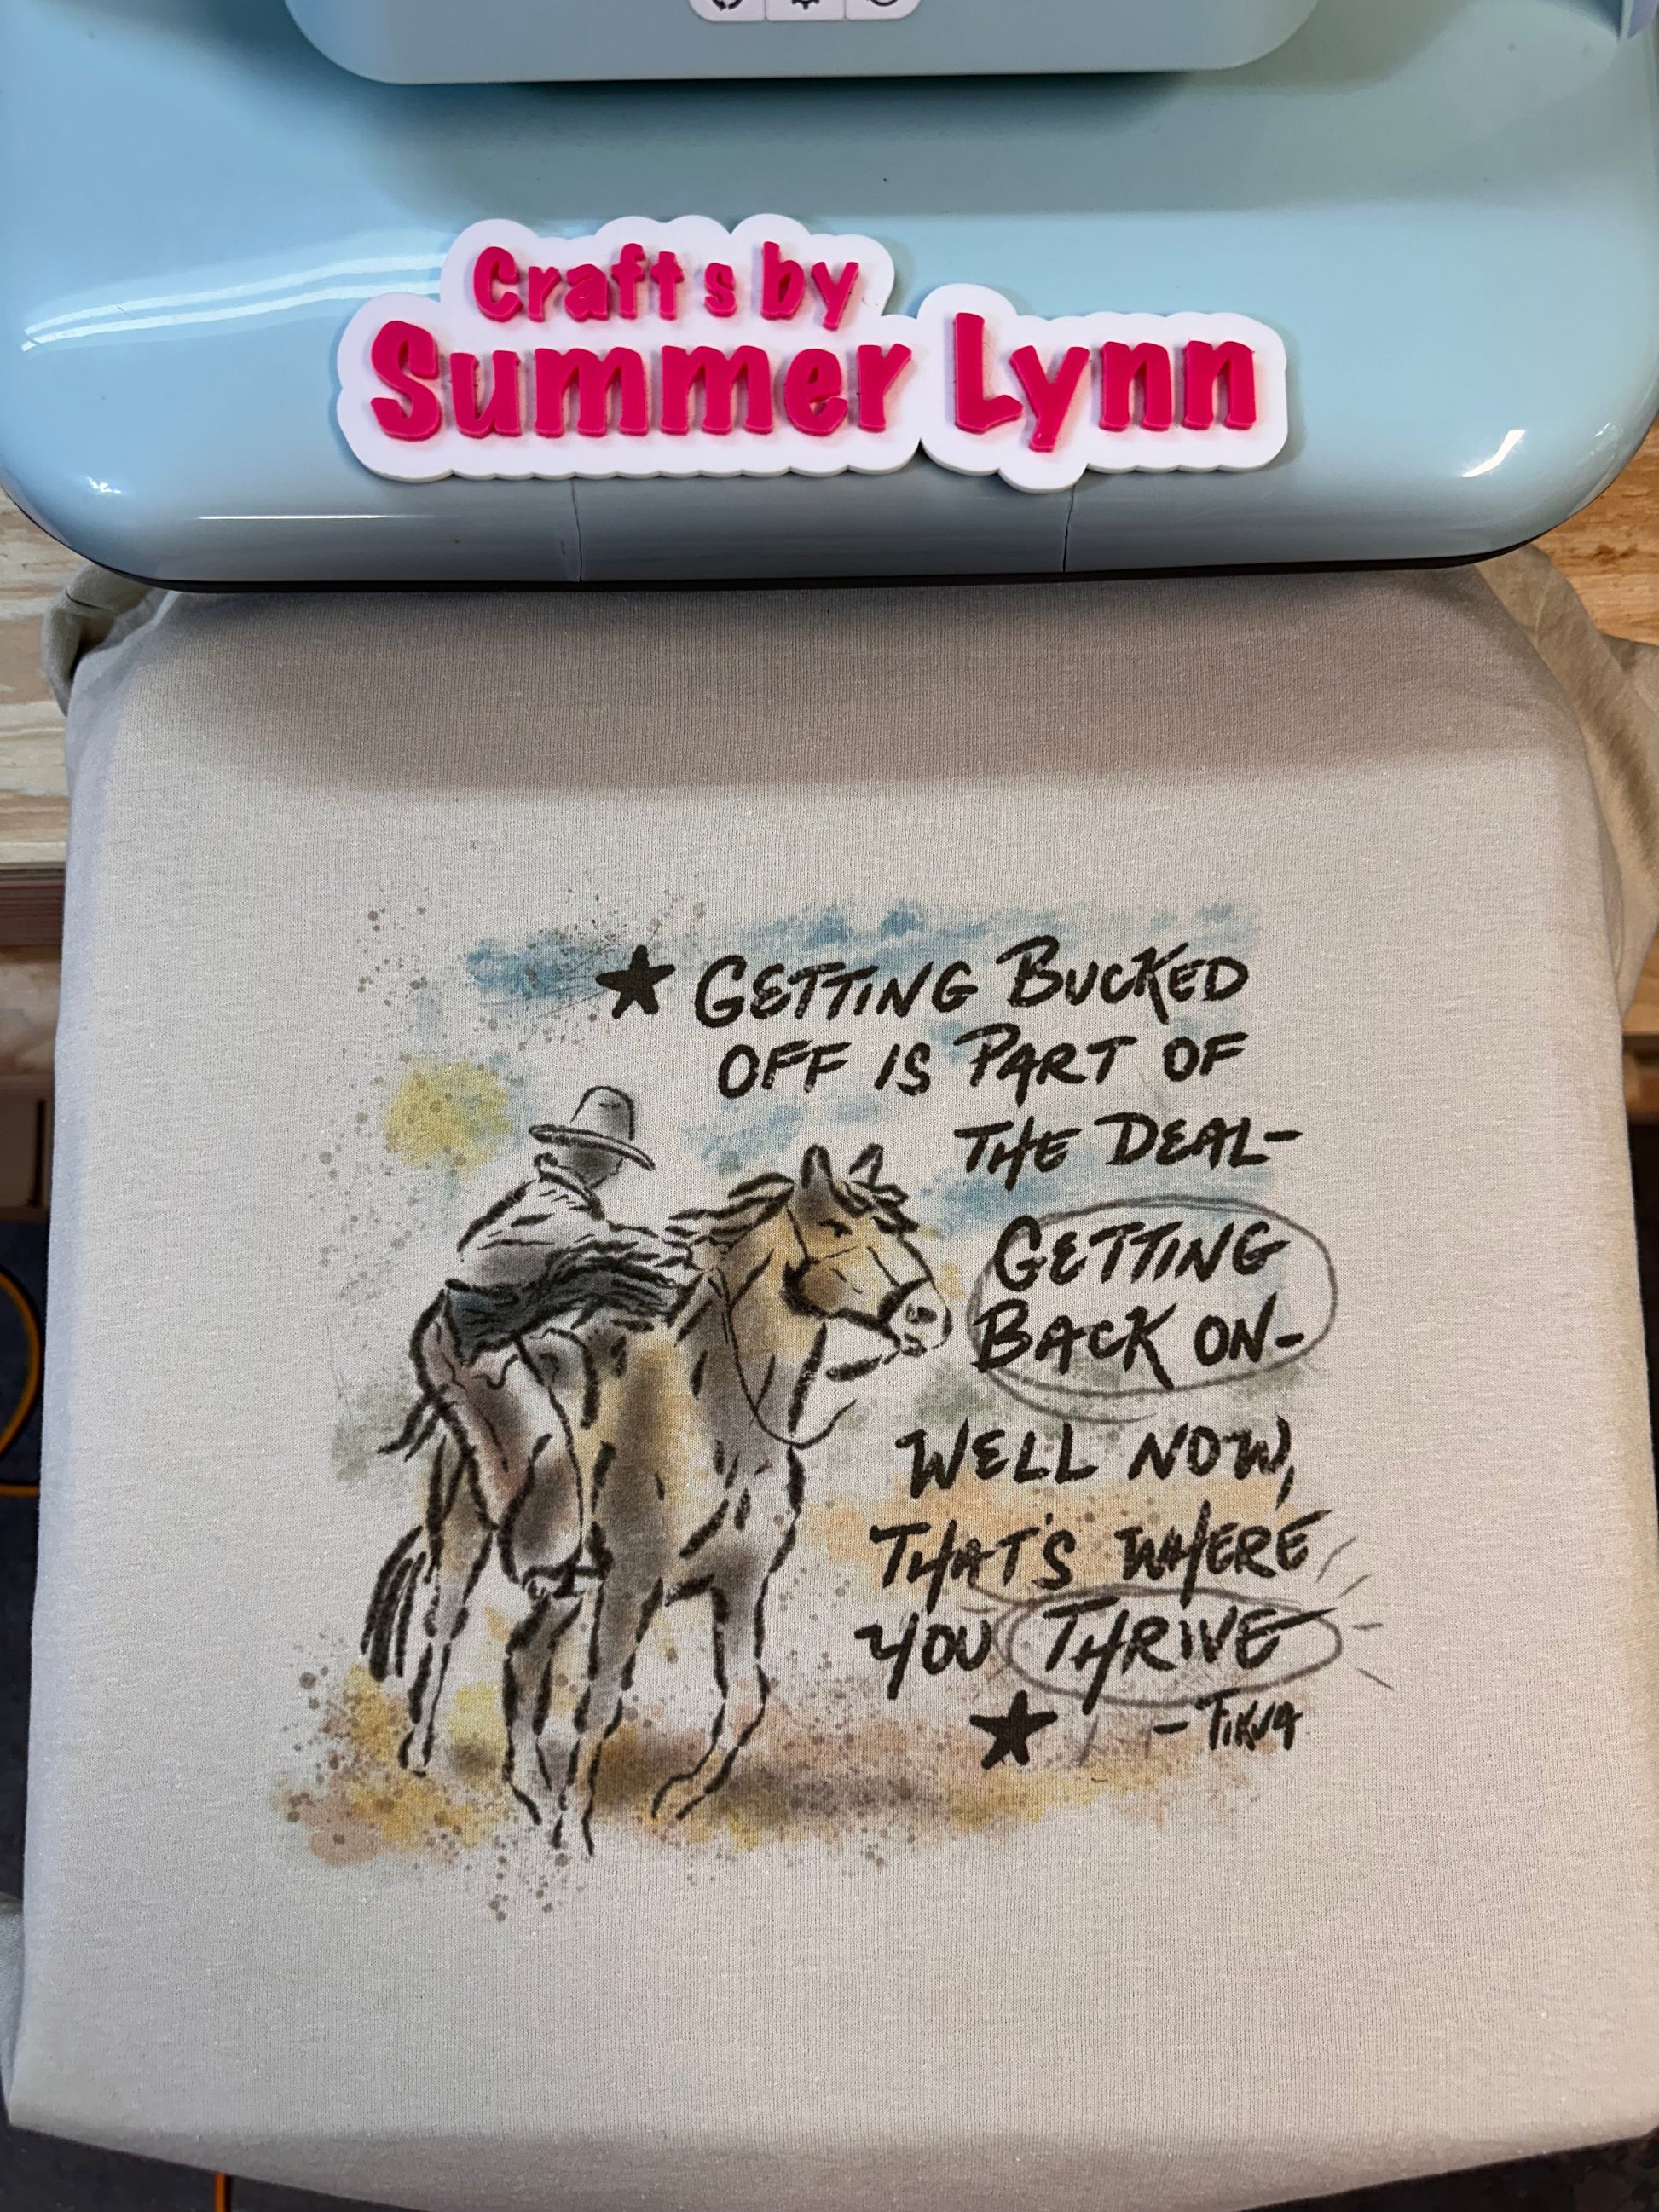 Crafts by
Summer Lynn
★ GETTING BUCKED
OFF IS PART OF
THE DEAL-
GETTING
BACK ON-
WELL NOW,
THAT'S WHERE
YOU THRIVE
★ - TIKVA